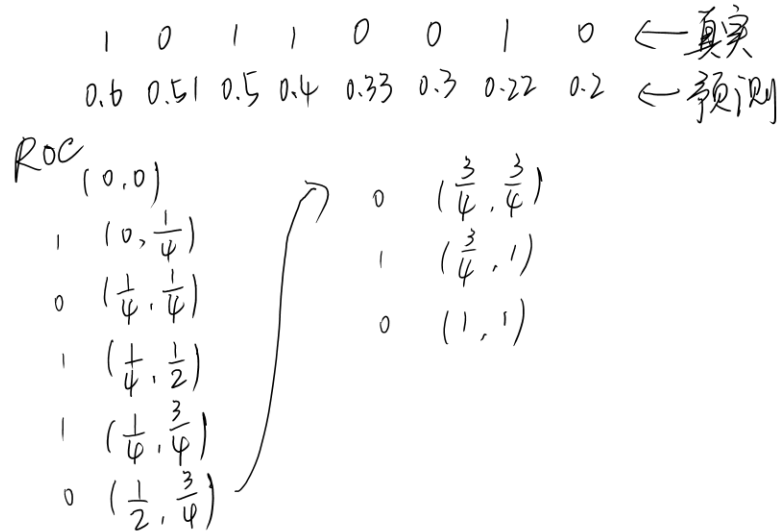 1 0 1 1 0 0 1 0 ← 真实
0.6 0.51 0.5 0.4 0.33 0.3 0.22 0.2 ← 预测
ROC
(0,0)
1 (0,1/4)
0 (1/4,1/4)
1 (1/4,1/2)
1 (1/4,3/4)
0 (1/2,3/4)
0 (3/4,3/4)
1 (3/4,1)
0 (1,1)